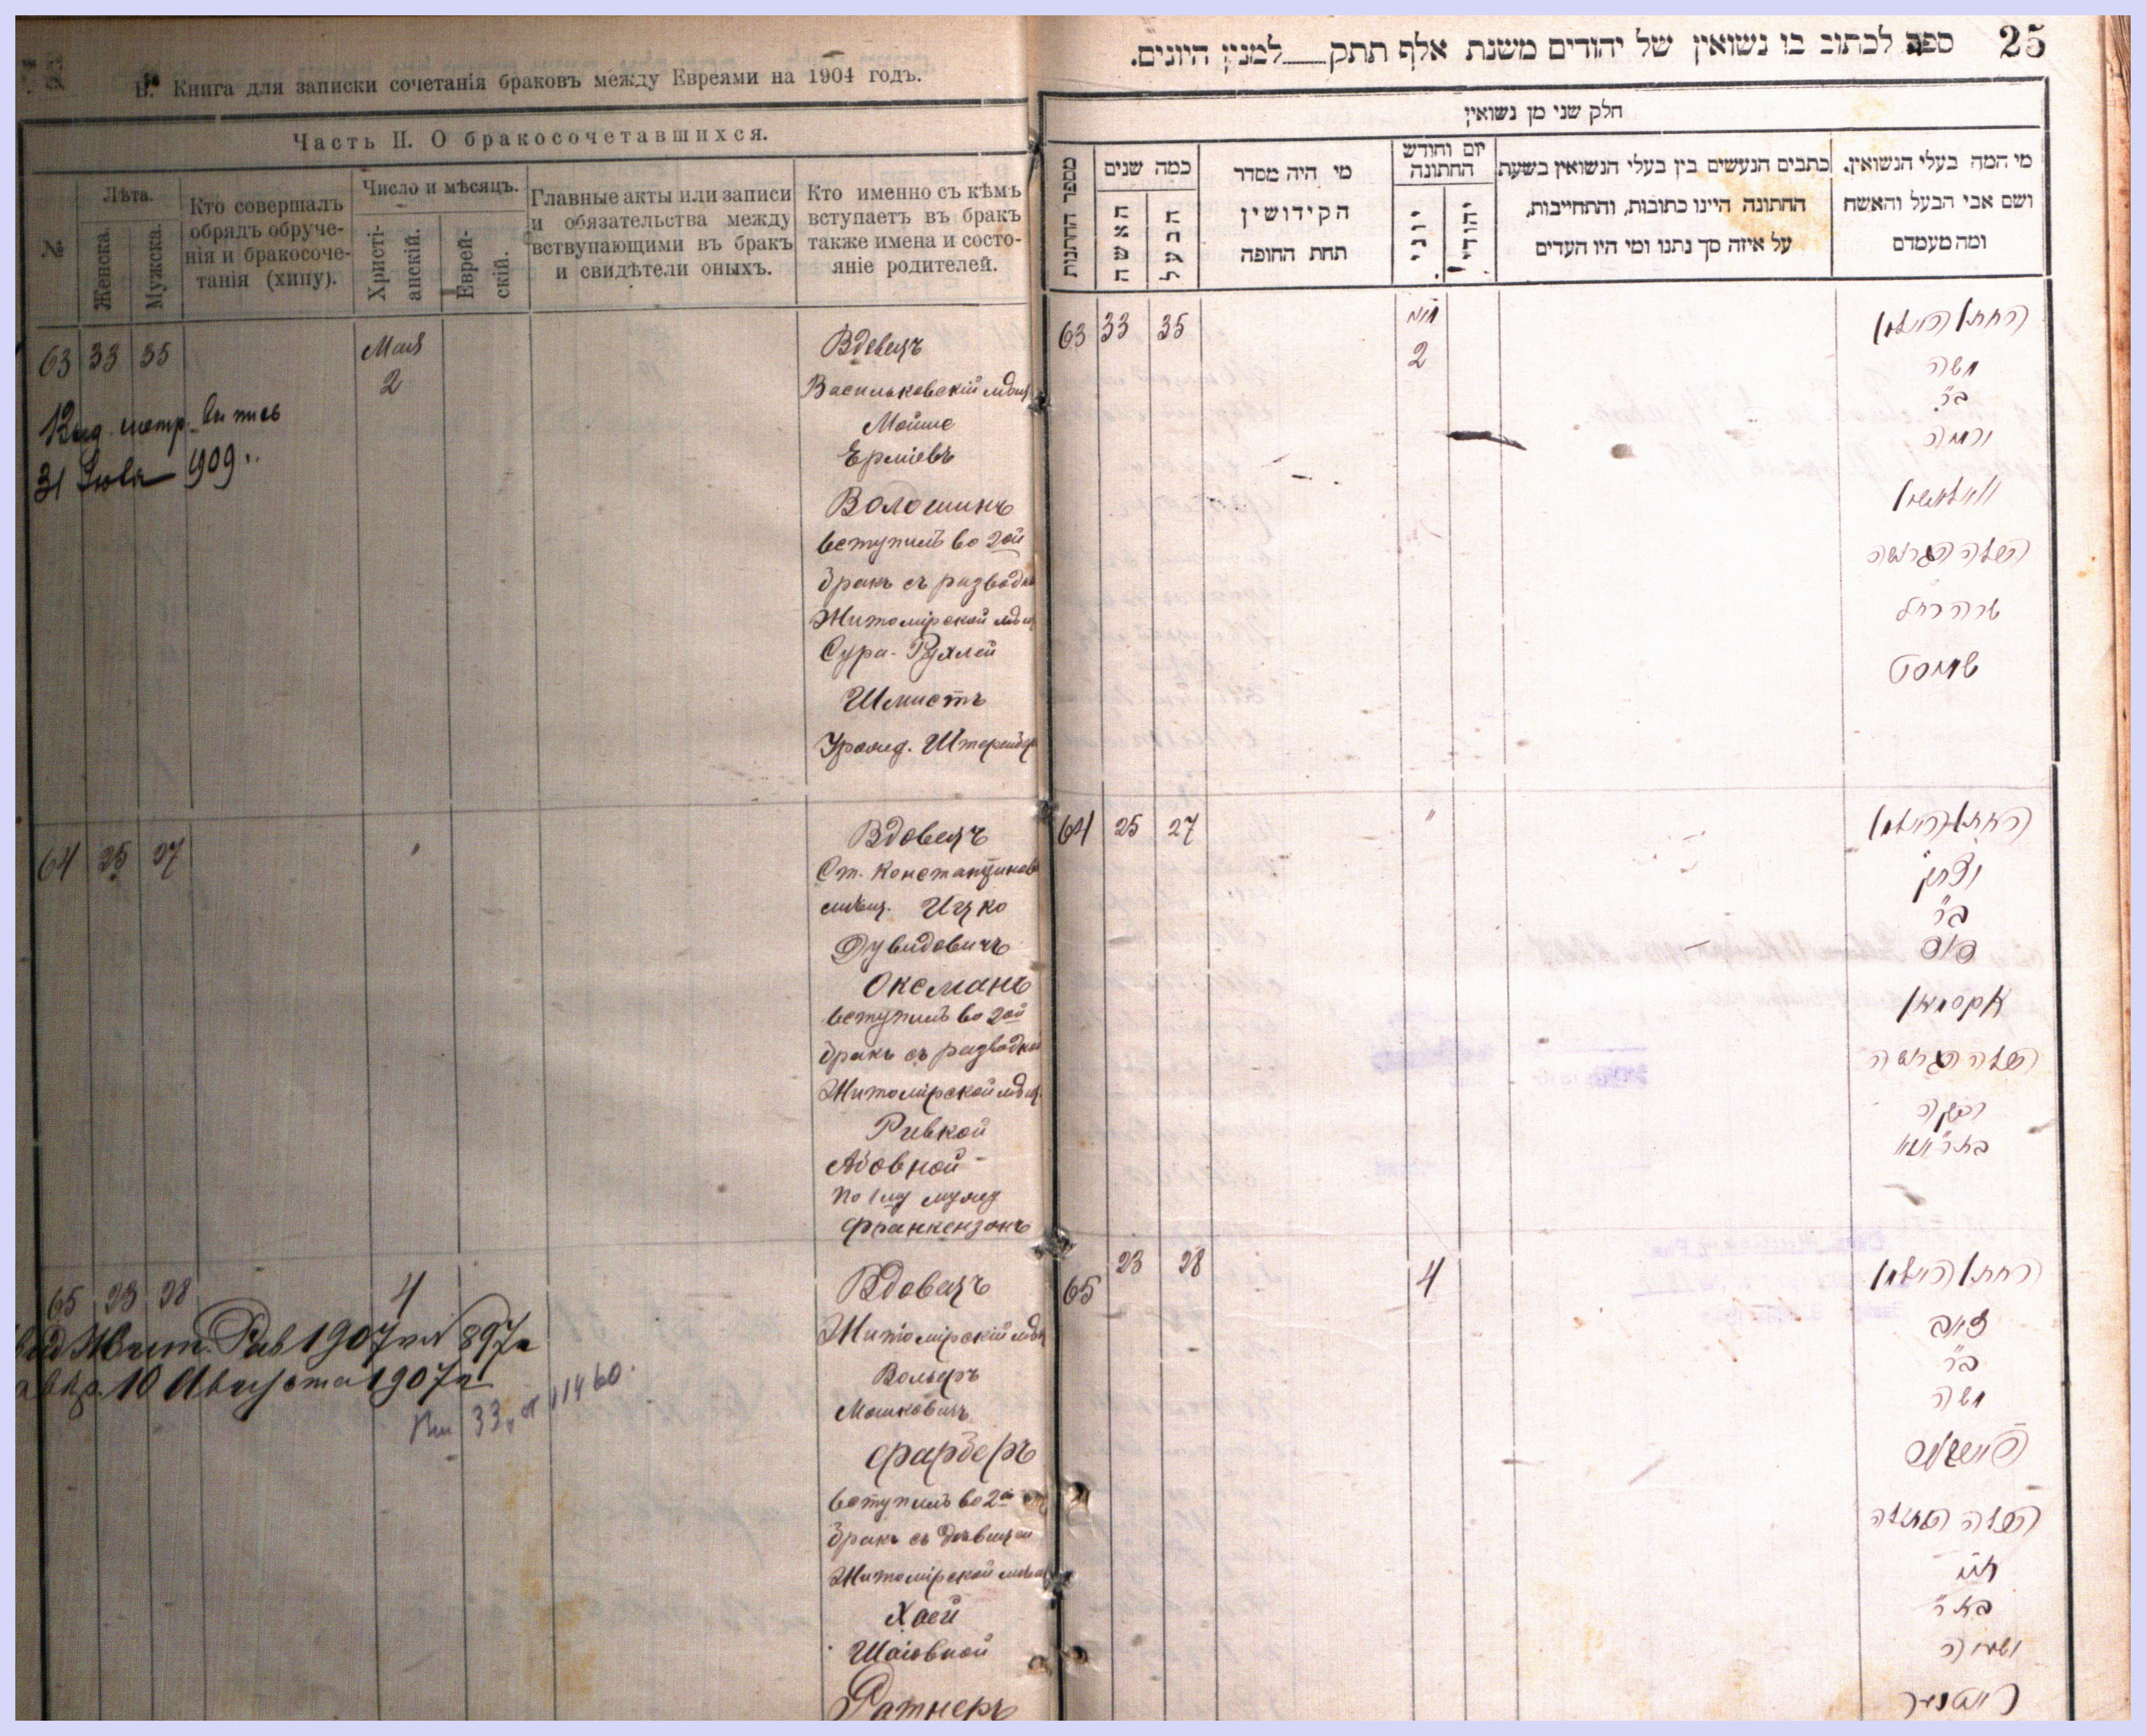 В. Книга для записки сочетанія браковъ между Евреями на 1904 годъ.
Часть II. О бракосочетавшихся.
№
Лѣта.
Женска.
Мужска.
Кто совершалъ
обрядъ обруче-
нія и бракосоче-
танія (хипу).
Число и мѣсяцъ.
Христі-
анскій.
Еврей-
скій.
Главные акты или записи
и обязательства между
вствупающими въ бракъ
и свидѣтели оныхъ.
Кто именно съ кѣмъ
вступаетъ въ бракъ
также имена и состо-
яніе родителей.
63 33 35
Мая
2
31 Іюля 1909
Вдовецъ
Васильковскій мѣщ
Мойше
Ерміевъ
Волошинъ
вступилъ во 2ой
бракъ съ разводк
Житомірской мѣщ
Сура-Рухлей
Шмистъ
64 25 27
Вдовецъ
Ст. Константинов
мѣщ. Ицко
Дувидовичъ
Оксманъ
вступилъ во 2ой
бракъ съ разводкой
Житомірской мѣщ.
Ривкой
По 1му мужу
Франкензонъ
65 23 28
4
Жит. Рав 1907 № 897
10 Августа 1907
33 11460
Вдовецъ
Житомірскій мѣщ
Вольфъ
Мошковичъ
Фарберъ
вступилъ во 2ой
бракъ съ дѣвицей
Житомірской мѣщ
Хаей
Шаіовной
Ратнеръ
25 ספר לכתוב בו נשואין של יהודים משנת אלף תתק___למנין היונים.
חלק שני מן נשואין
מי המה בעלי הנשואין.
ושם אבי הבעל והאשה
ומה מעמדם
כתבים הנעשים בין בעלי הנשואין בשעת
החתונה היינו כתובות, והתחייבות,
על איזה סך נתנו ומי היו העדים
יום וחודש
החתונה
יהודי
יוני
מי היה מסדר
הקידושין
תחת החופה
כמה שנים
הבעל
האשה
מספר החתונות
63 33 35
מאי
2
החתן האלמן
משה
ב״ר
ירמיה
וואלאשין
הכלה הגרושה
שרה רחל
שמיסט
64 25 27
"
החתן האלמן
יצחק
ב״ר
דוד
אקסמאן
הכלה הגרושה
רבקה
65 23 28
4
החתן האלמן
זאב
ב״ר
משה
פארבער
הכלה הבתולה
חיה
בת ר׳
ישעיה
ראטנער